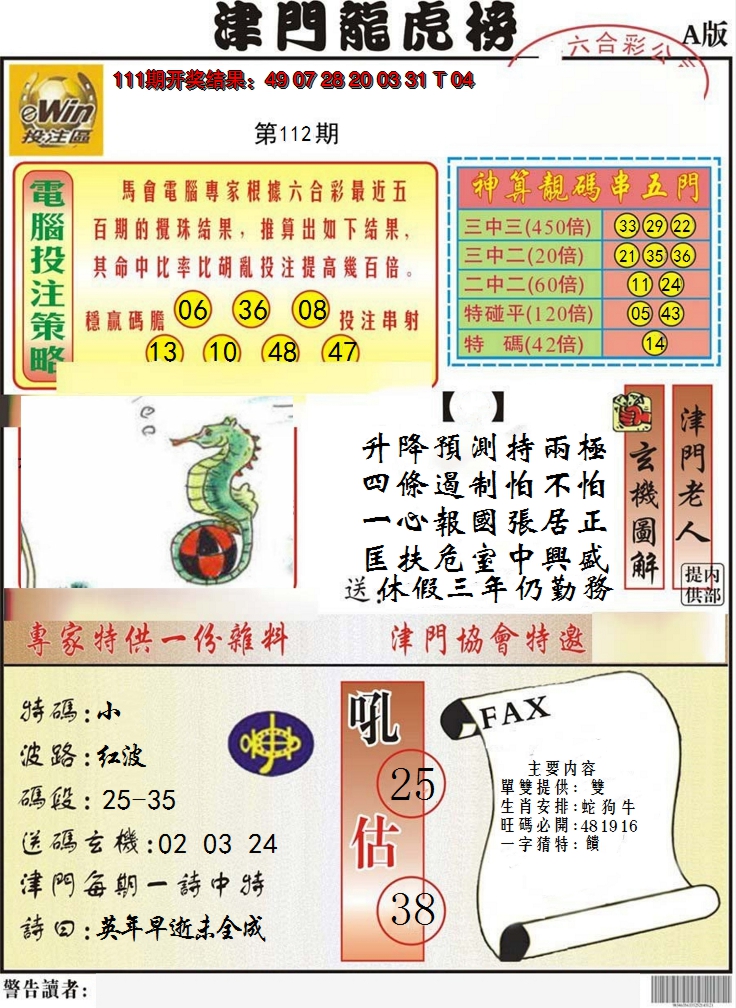 津門龍虎榜
A版
六合彩公
eWin
投注區
111期开奖结果：49 07 28 20 03 31 T 04
第112期
電腦投注策略
馬會電腦專家根據六合彩最近五
百期的攪珠结果，推算出如下结果，
其命中比率比胡亂投注提高幾百倍。
穩赢碼膽 06 36 08 投注串射
13 10 48 47
神算靚碼串五門
三中三(450倍) 33 29 22
三中二(20倍) 21 35 36
二中二(60倍) 11 24
特碰平(120倍) 05 43
特 碼(42倍) 14
【 】
升降預測持兩極
四條過制怕不怕
一心報國張居正
匡扶危室中興盛
送:休假三年仍勤務
玄機圖解
津門老人
内部提供
專家特供一份雜料
津門協會特邀
特碼:小
波路:红波
碼段:25-35
送碼玄機:02 03 24
津門每期一詩中特
詩曰:英年早逝未全成
吼
25
估
38
FAX
主要内容
單雙提供：雙
生肖安排:蛇狗牛
旺碼必開:481916
一字猜特：饋
警告讀者：